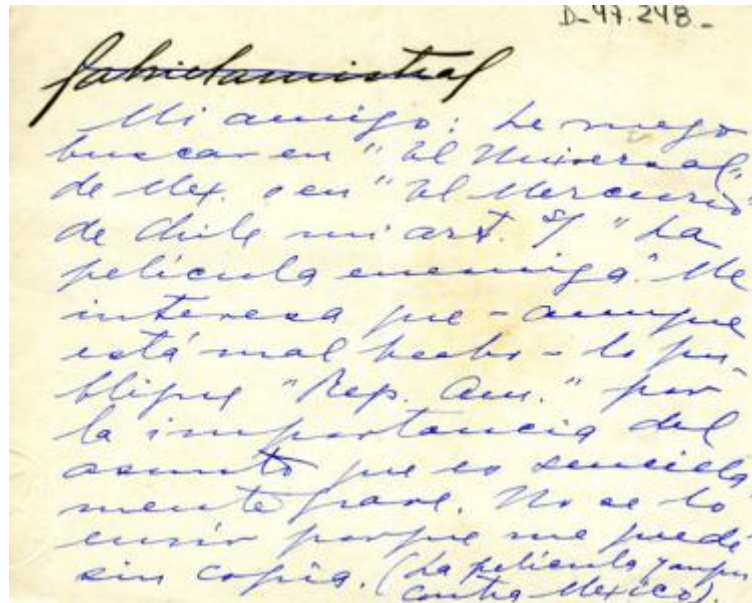 D-47.248.-
Gabriela Mistral
Mi amigo: Le ruego
buscar en "El Universal"
de Mex. o en "El Mercurio"
de Chile mi art. s/ "La
película enemiga". Me
interesa que - aunque
está mal hecho - lo pu-
blique "Rep. Am." por
la importancia del
asunto que es sencilla
mente grave. No se lo
envío porque me quedé
sin copia. (La película yanqui
contra Mexico).